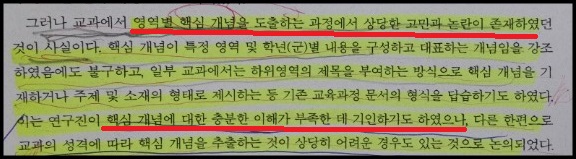 그러나 교과에서 영역별 핵심 개념을 도출하는 과정에서 상당한 고민과 논란이 존재하였던
것이 사실이다. 핵심 개념이 특정 영역 및 학년(군)별 내용을 구성하고 대표하는 개념임을 강조
하였음에도 불구하고, 일부 교과에서는 하위영역의 제목을 부여하는 방식으로 핵심 개념을 기
재하거나 주제 및 소재의 형태로 제시하는 등 기존 교육과정 문서의 형식을 답습하기도 하였다.
이는 연구진이 핵심 개념에 대한 충분한 이해가 부족한 데 기인하기도 하였으나, 다른 한편으로
교과의 성격에 따라 핵심 개념을 추출하는 것이 상당히 어려운 경우도 있는 것으로 논의되었다.